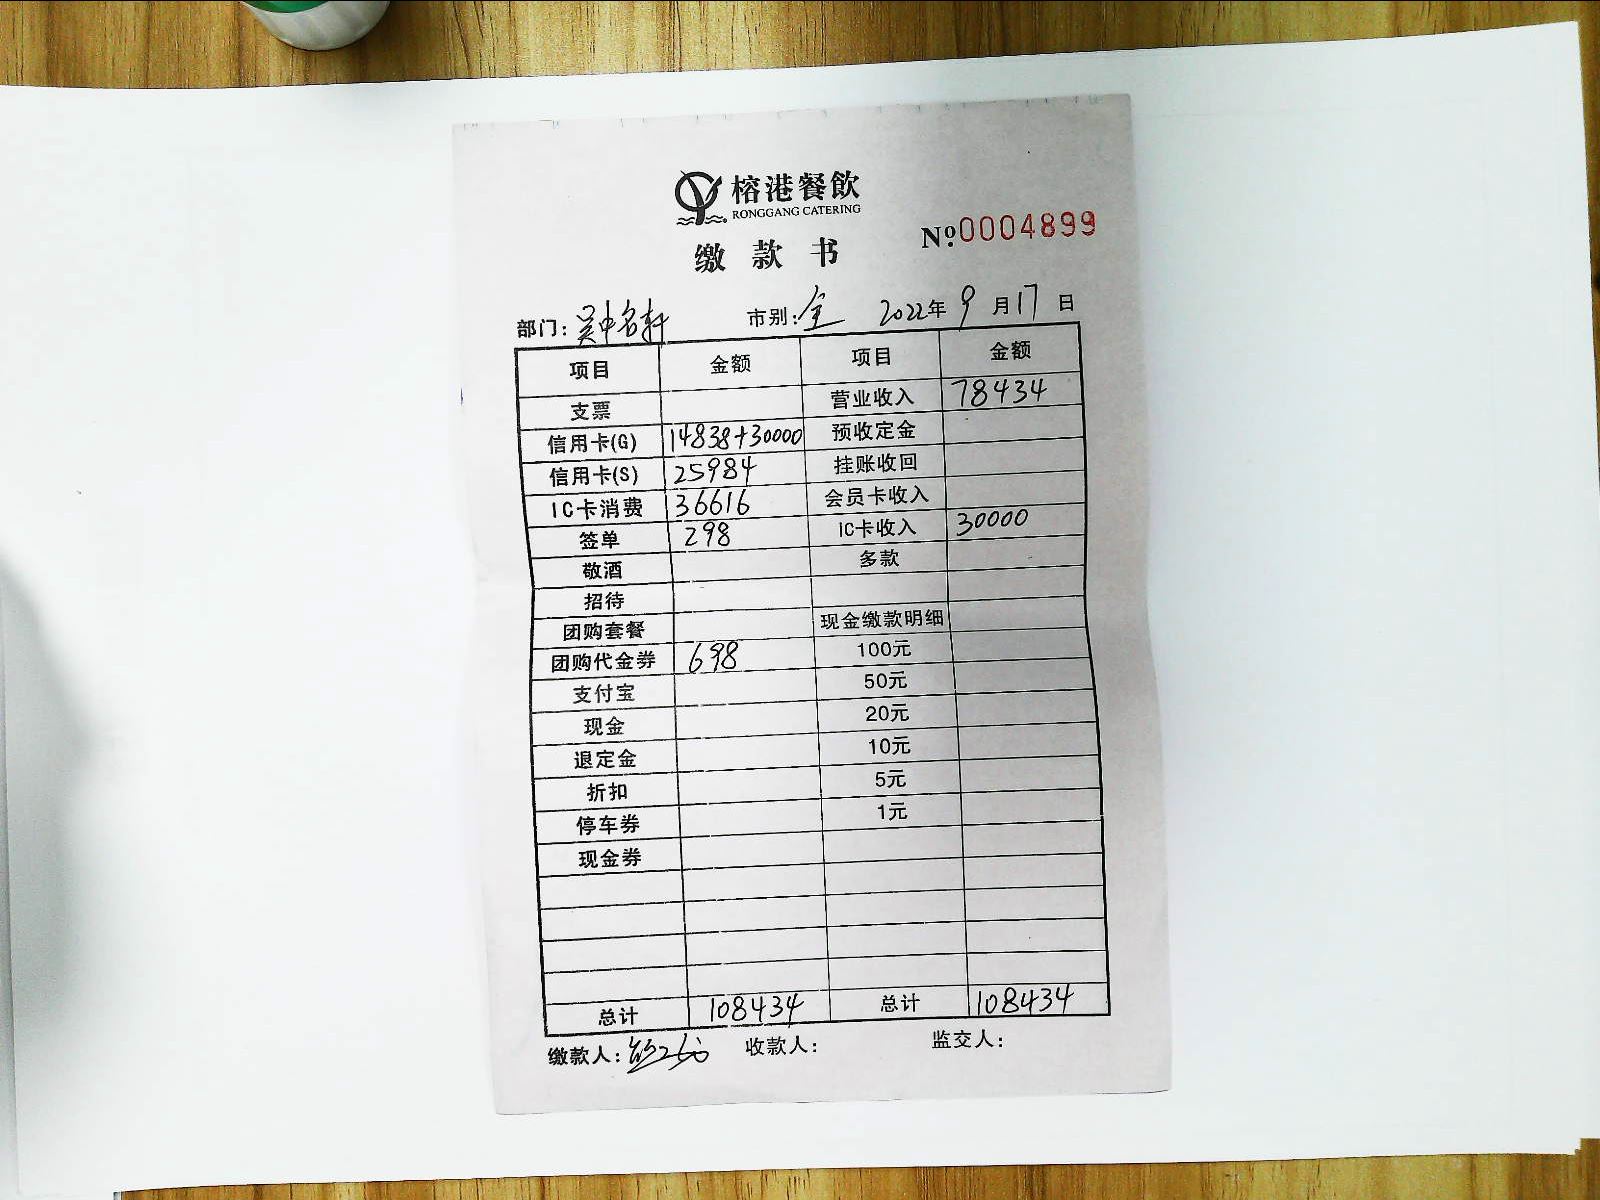 榕港餐飲
RONGGANG CATERING
缴款书
№0004899
部门：吴中名轩 市别：全 2022年9月17日
项目 金额 项目 金额
支票 营业收入 78434
信用卡(G) 14838+30000 预收定金
信用卡(S) 25984 挂账收回
IC卡消费 36616 会员卡收入
签单 298 IC卡收入 30000
敬酒 多款
招待
团购套餐 现金缴款明细
团购代金券 698 100元
支付宝 50元
现金 20元
退定金 10元
折扣 5元
停车券 1元
现金券
总计 108434 总计 108434
缴款人： 收款人： 监交人：